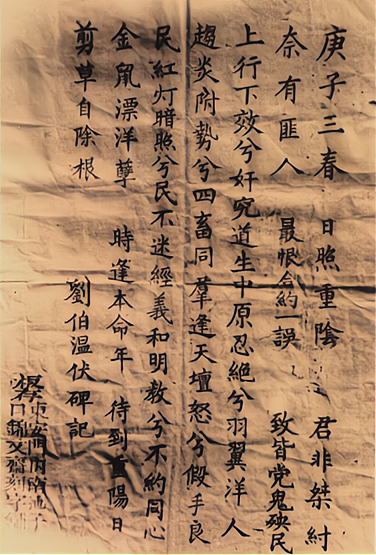 庚子三春 日照重陰 君非桀紂
奈有匪人 最恨合約一誤 致皆党鬼殃民
上行下效兮奸究道生中原忍絶兮羽翼洋人
趨炎附勢兮四畜同羣逢天壇怒兮假手良
民紅灯暗照兮民不迷經義和明教兮不約同心
金鼠漂洋孽 時逢本命年 待到重陽日
剪草自除根 劉伯温伏碑記
東安門內南池子
口錦文齋刻字鋪